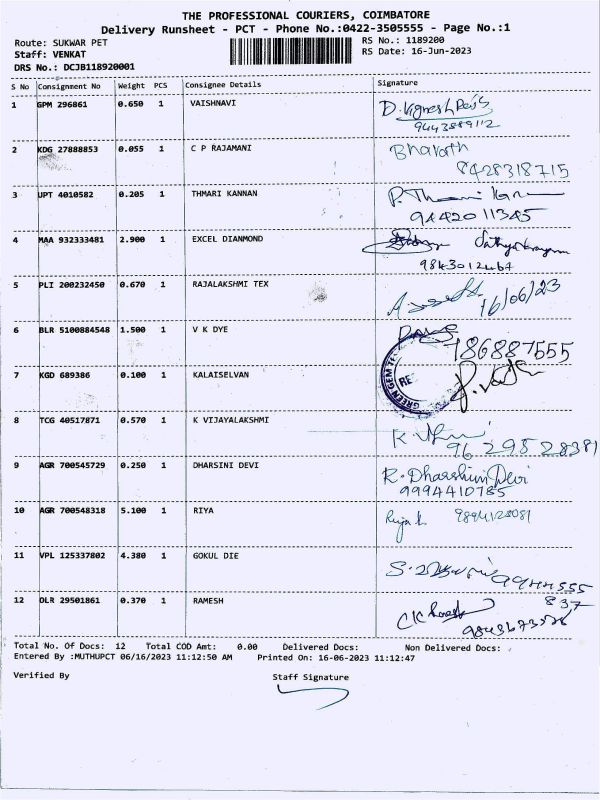 THE PROFESSIONAL COURIERS, COIMBATORE
Delivery Runsheet - PCT - Phone No.:0422-3505555 - Page No.:1
Route: SUKWAR PET RS No.: 1189200
Staff: VENKAT RS Date: 16-Jun-2023
DRS No.: DCJB118920001
S No Consignment No Weight PCS Consignee Details Signature
1 GPM 296861 0.650 1 VAISHNAVI D.
9443889112
2 KDG 27888853 0.055 1 C P RAJAMANI Bharath
8428318715
3 JPT 4010582 0.205 1 THMARI KANNAN P.
9442011345
4 MAA 932333481 2.900 1 EXCEL DIANMOND
5 PLI 200232450 0.670 1 RAJALAKSHMI TEX 16/06/23
6 BLR 5100884548 1.500 1 V K DYE
786887555
GREEN GEM
RE
7 KGD 689386 0.100 1 KALAISELVAN
8 TCG 40517871 0.570 1 K VIJAYALAKSHMI K
96 29528381
9 AGR 700545729 0.250 1 DHARSINI DEVI R. Dharshini Devi
9994410785
10 AGR 700548318 5.100 1 RIYA Riya k
11 VPL 125337802 4.380 1 GOKUL DIE S.
9944555
837
12 DLR 29501861 0.370 1 RAMESH CK
Total No. Of Docs: 12 Total COD Amt: 0.00 Delivered Docs: Non Delivered Docs:
Entered By :MUTHUPCT 06/16/2023 11:12:50 AM Printed On: 16-06-2023 11:12:47
Verified By Staff Signature